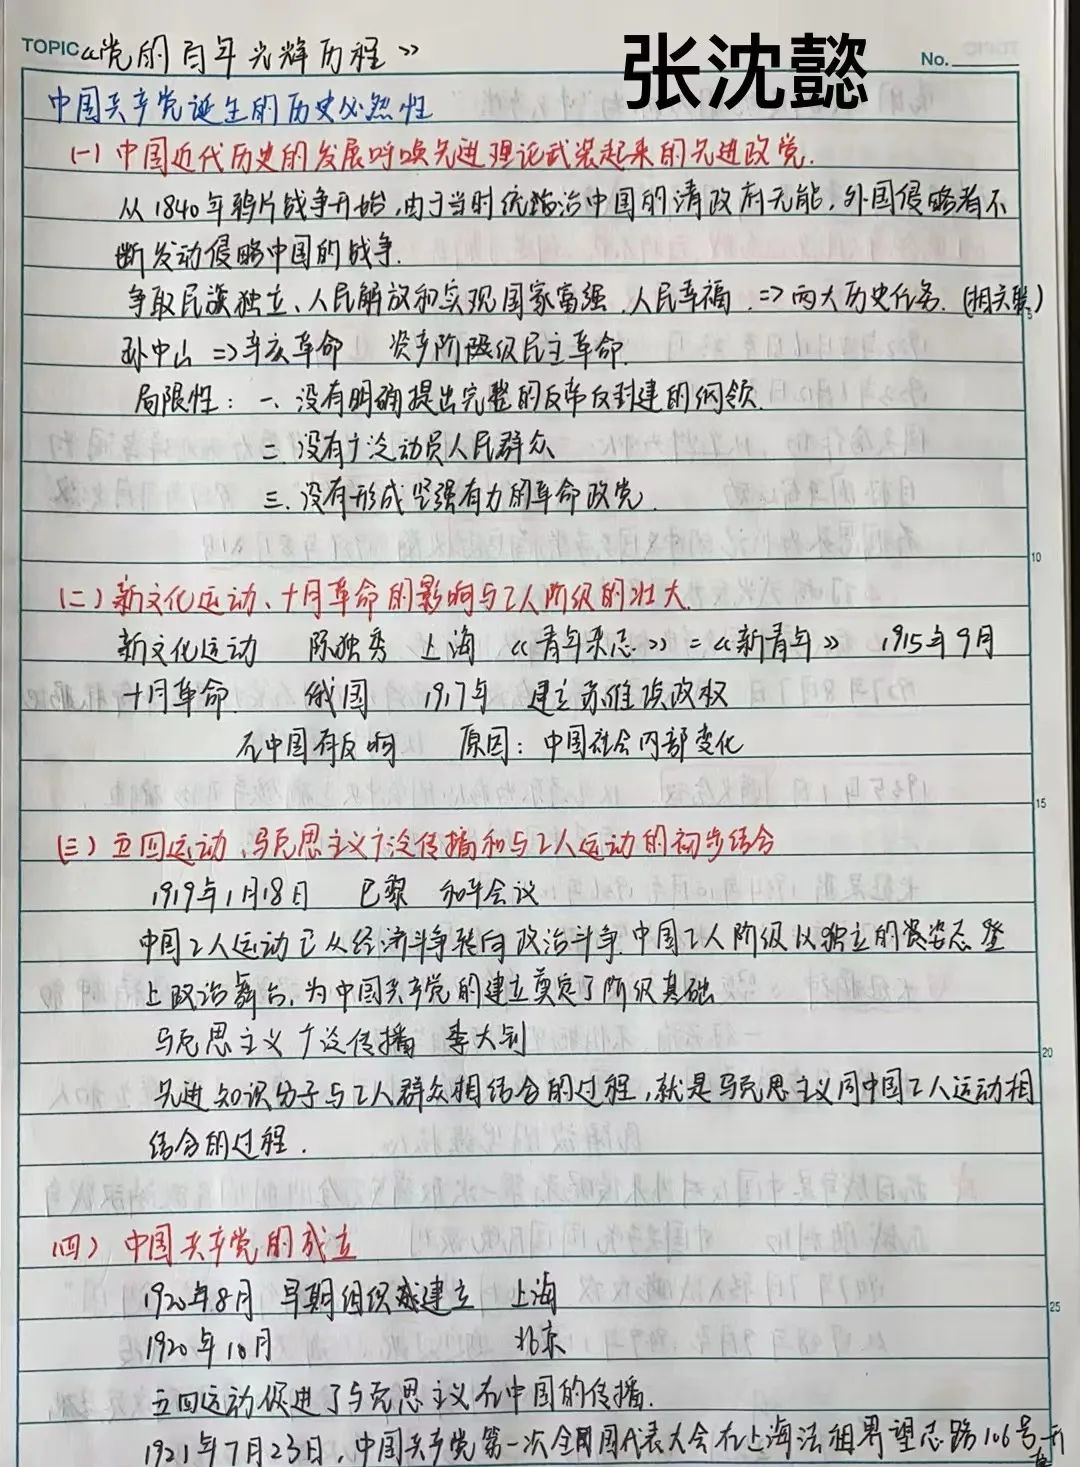 TOPIC《党的百年光辉历程》
张沈懿
No.
中国共产党诞生的历史必然性
(一)中国近代历史的发展呼唤先进理论武装起来的先进政党.
从1840年鸦片战争开始,由于当时统治中国的清政府无能,外国侵略者不
断发动侵略中国的战争.
争取民族独立、人民解放和实现国家富强、人民幸福. => 两大历史任务. (相关联)
5
孙中山 => 辛亥革命 资产阶级民主革命.
局限性: 一、没有明确提出完整的反帝反封建的纲领.
二.没有广泛动员人民群众
三.没有形成坚强有力的革命政党.
10
(二)新文化运动、十月革命的影响与工人阶级的壮大.
新文化运动 陈独秀 上海 《青年杂志》=《新青年》 1915年9月
十月革命. 俄国 1917年 建立苏维埃政权
在中国有反响 原因: 中国社会内部变化
15
(三)五四运动、马克思主义广泛传播和与工人运动的初步结合
1919年1月18日 巴黎 和平会议
中国工人运动已从经济斗争转向政治斗争.中国工人阶级以独立的姿态登
上政治舞台,为中国共产党的建立奠定了阶级基础
马克思主义广泛传播 李大钊
20
先进知识分子与工人群众相结合的过程,就是马克思主义同中国工人运动相
结合的过程.
(四)中国共产党的成立
1920年8月 早期组织建立 上海
25
1920年10月 北京
五四运动促进了马克思主义在中国的传播.
1921年7月23日,中国共产党第一次全国代表大会在上海法租界望志路106号开